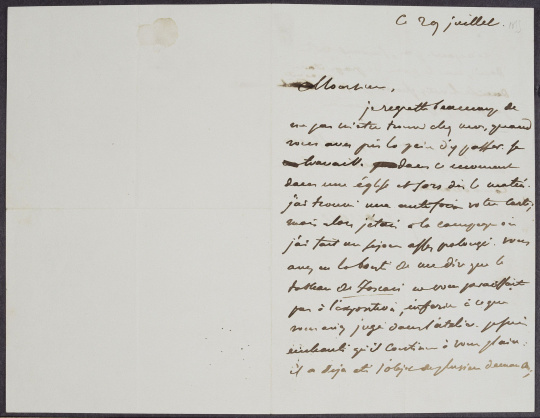 Ce 29 juillet.
Monsieur,
je regrette beaucoup de
ne pas m'etre trouvé chez moi, quand
vous avez pris la peine d'y passer. Je
travaille dans ce moment
dans une église et sors dès le matin.
j'ai trouvé une autre fois votre carte;
mais alors j'etais à la campagne où
j'ai fait un séjour assez prolongé. vous
avez eu la bonté de me dire que le
tableau de Foscari ne vous paraissait
pas à l'exposition, inférieur à ce que
vous aviez jugé dans l'atelier. je suis
enchanté qu'il continue à vous plaire:
il a deja été l'objet de plusieurs demandes,